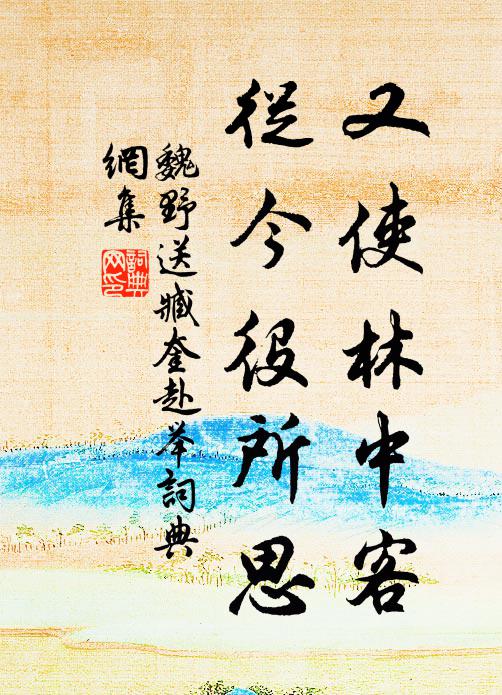 又使林中客
從今役所思
魏野送臧奎赴举詞典
網集
詞典
网印